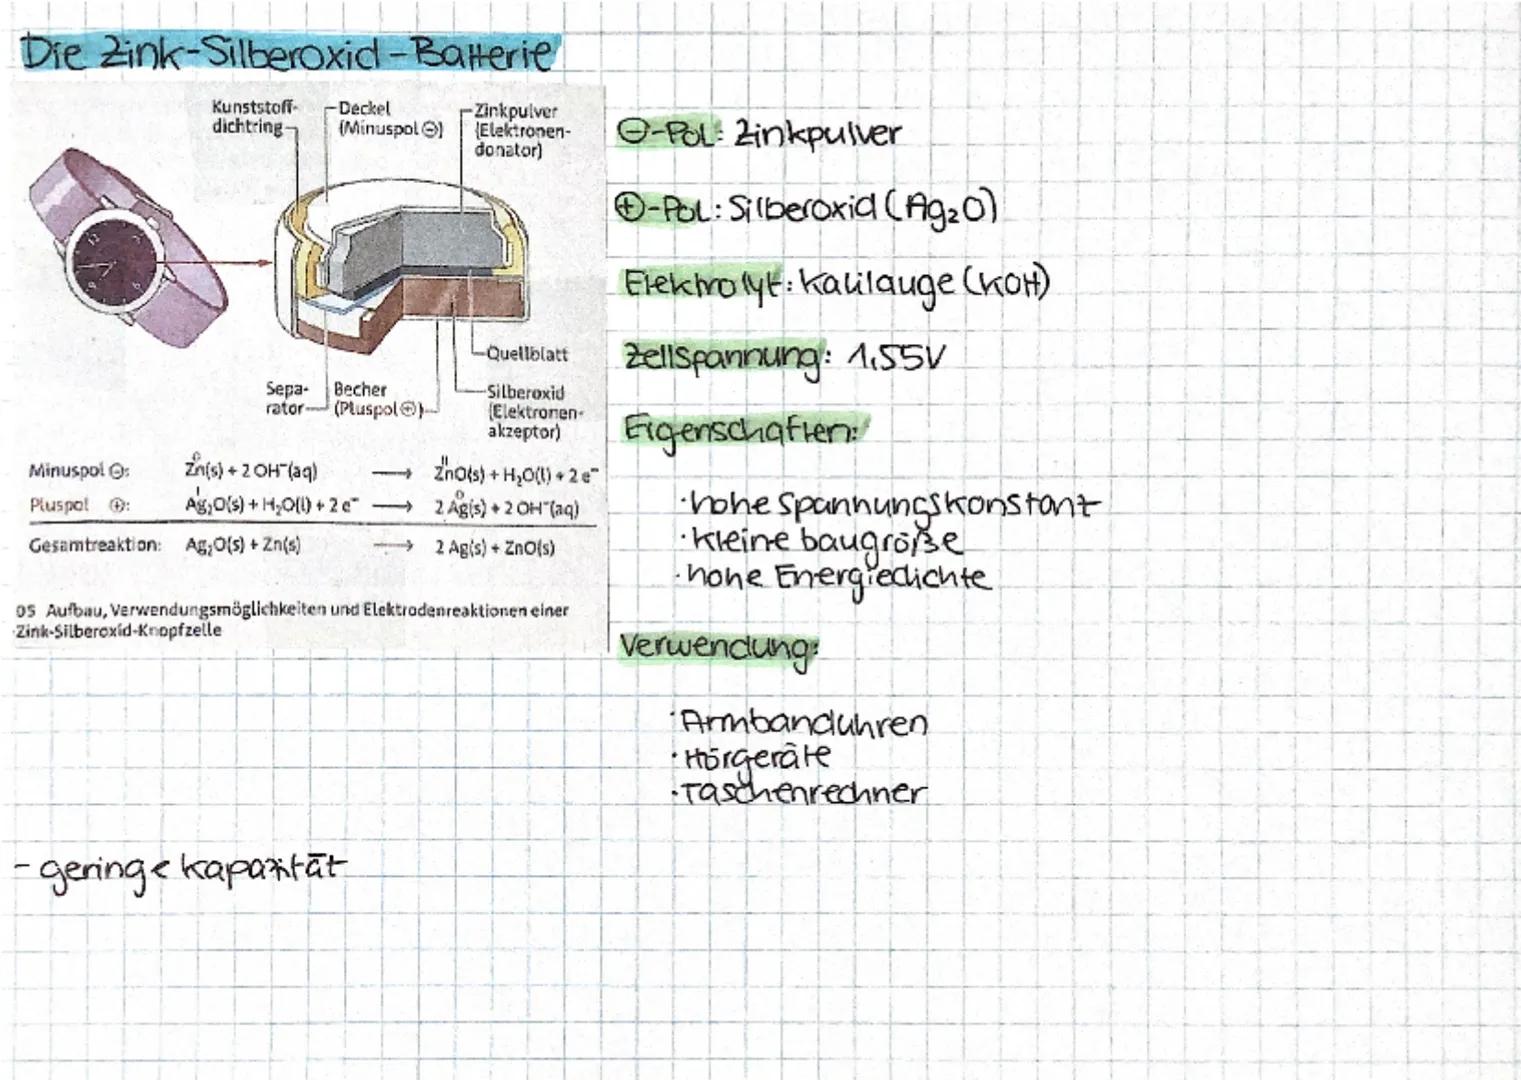 Die Zink-Silberoxid-Batterie
Kunststoff-
dichtring
Deckel
(Minuspol ⊖)
Zinkpulver
(Elektronen-
donator)
Quellblatt
Sepa-
rator
Becher
(Pluspol ⊕)
Silberoxid
(Elektronen-
akzeptor)
0 II
Minuspol ⊖: Zn(s) + 2 OH⁻(aq) → ZnO(s) + H₂O(l) + 2 e⁻
I 0
Pluspol ⊕: Ag₂O(s) + H₂O(l) + 2 e⁻ → 2 Ag(s) + 2 OH⁻(aq)
Gesamtreaktion: Ag₂O(s) + Zn(s) → 2 Ag(s) + ZnO(s)
05 Aufbau, Verwendungsmöglichkeiten und Elektrodenreaktionen einer
Zink-Silberoxid-Knopfzelle
⊖-Pol: Zinkpulver
⊕-Pol: Silberoxid (Ag₂O)
Elektrolyt: Kalilauge (KOH)
Zellspannung: 1,55V
Eigenschaften:
·hohe Spannungskonstant
·kleine baugröße
·hohe Energiedichte
Verwendung:
·Armbanduhren
·Hörgeräte
·Taschenrechner
- geringe kapazität